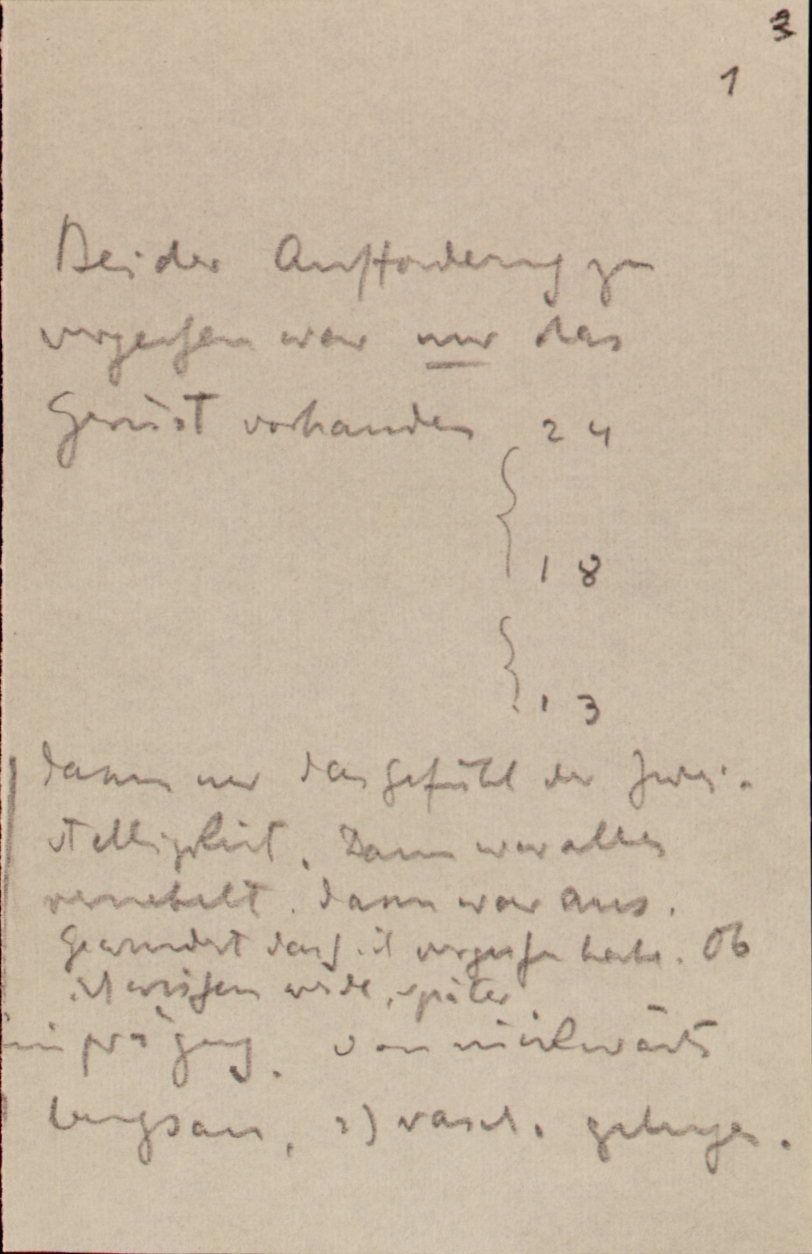 3
1
Bei der Aufforderung zu
vergessen war nur das
Gerüst vorhanden 2 4
1 8
1 3
dann nur das Gefühl der Zwei-
stelligkeit. Dann war alles
vernebelt. dann war aus.
Gewundert dass ich vergessen habe. Ob
ich wissen werde, später
prägung. von rückwärts
langsam, 2) rasch. gelungen.